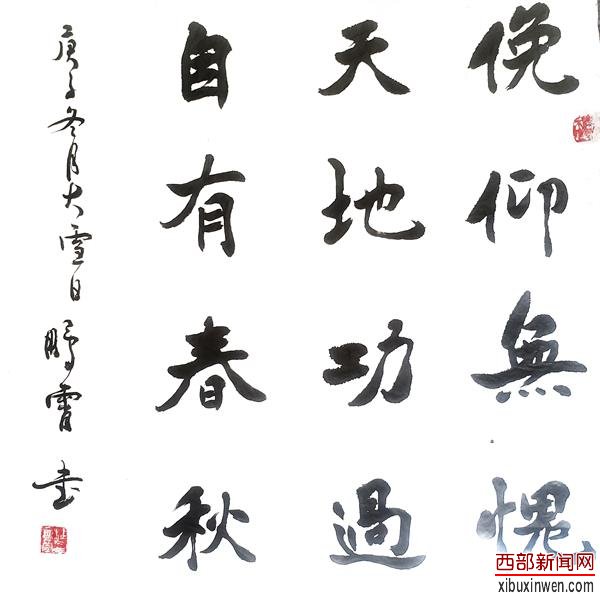 俛仰無愧
天地功過
自有春秋
庚子冬月大雪日鵬霄书
西部新闻网
xibuxinwen.com